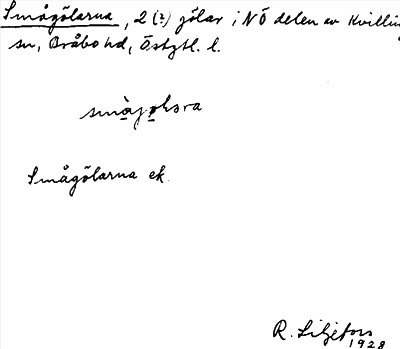 Smågölarna, 2 (?) gölar i NÖ delen av Kvilling
sn, Bråbo hd, Östgtl. l.
Smågölarna ek.
R. Liljefors
1928